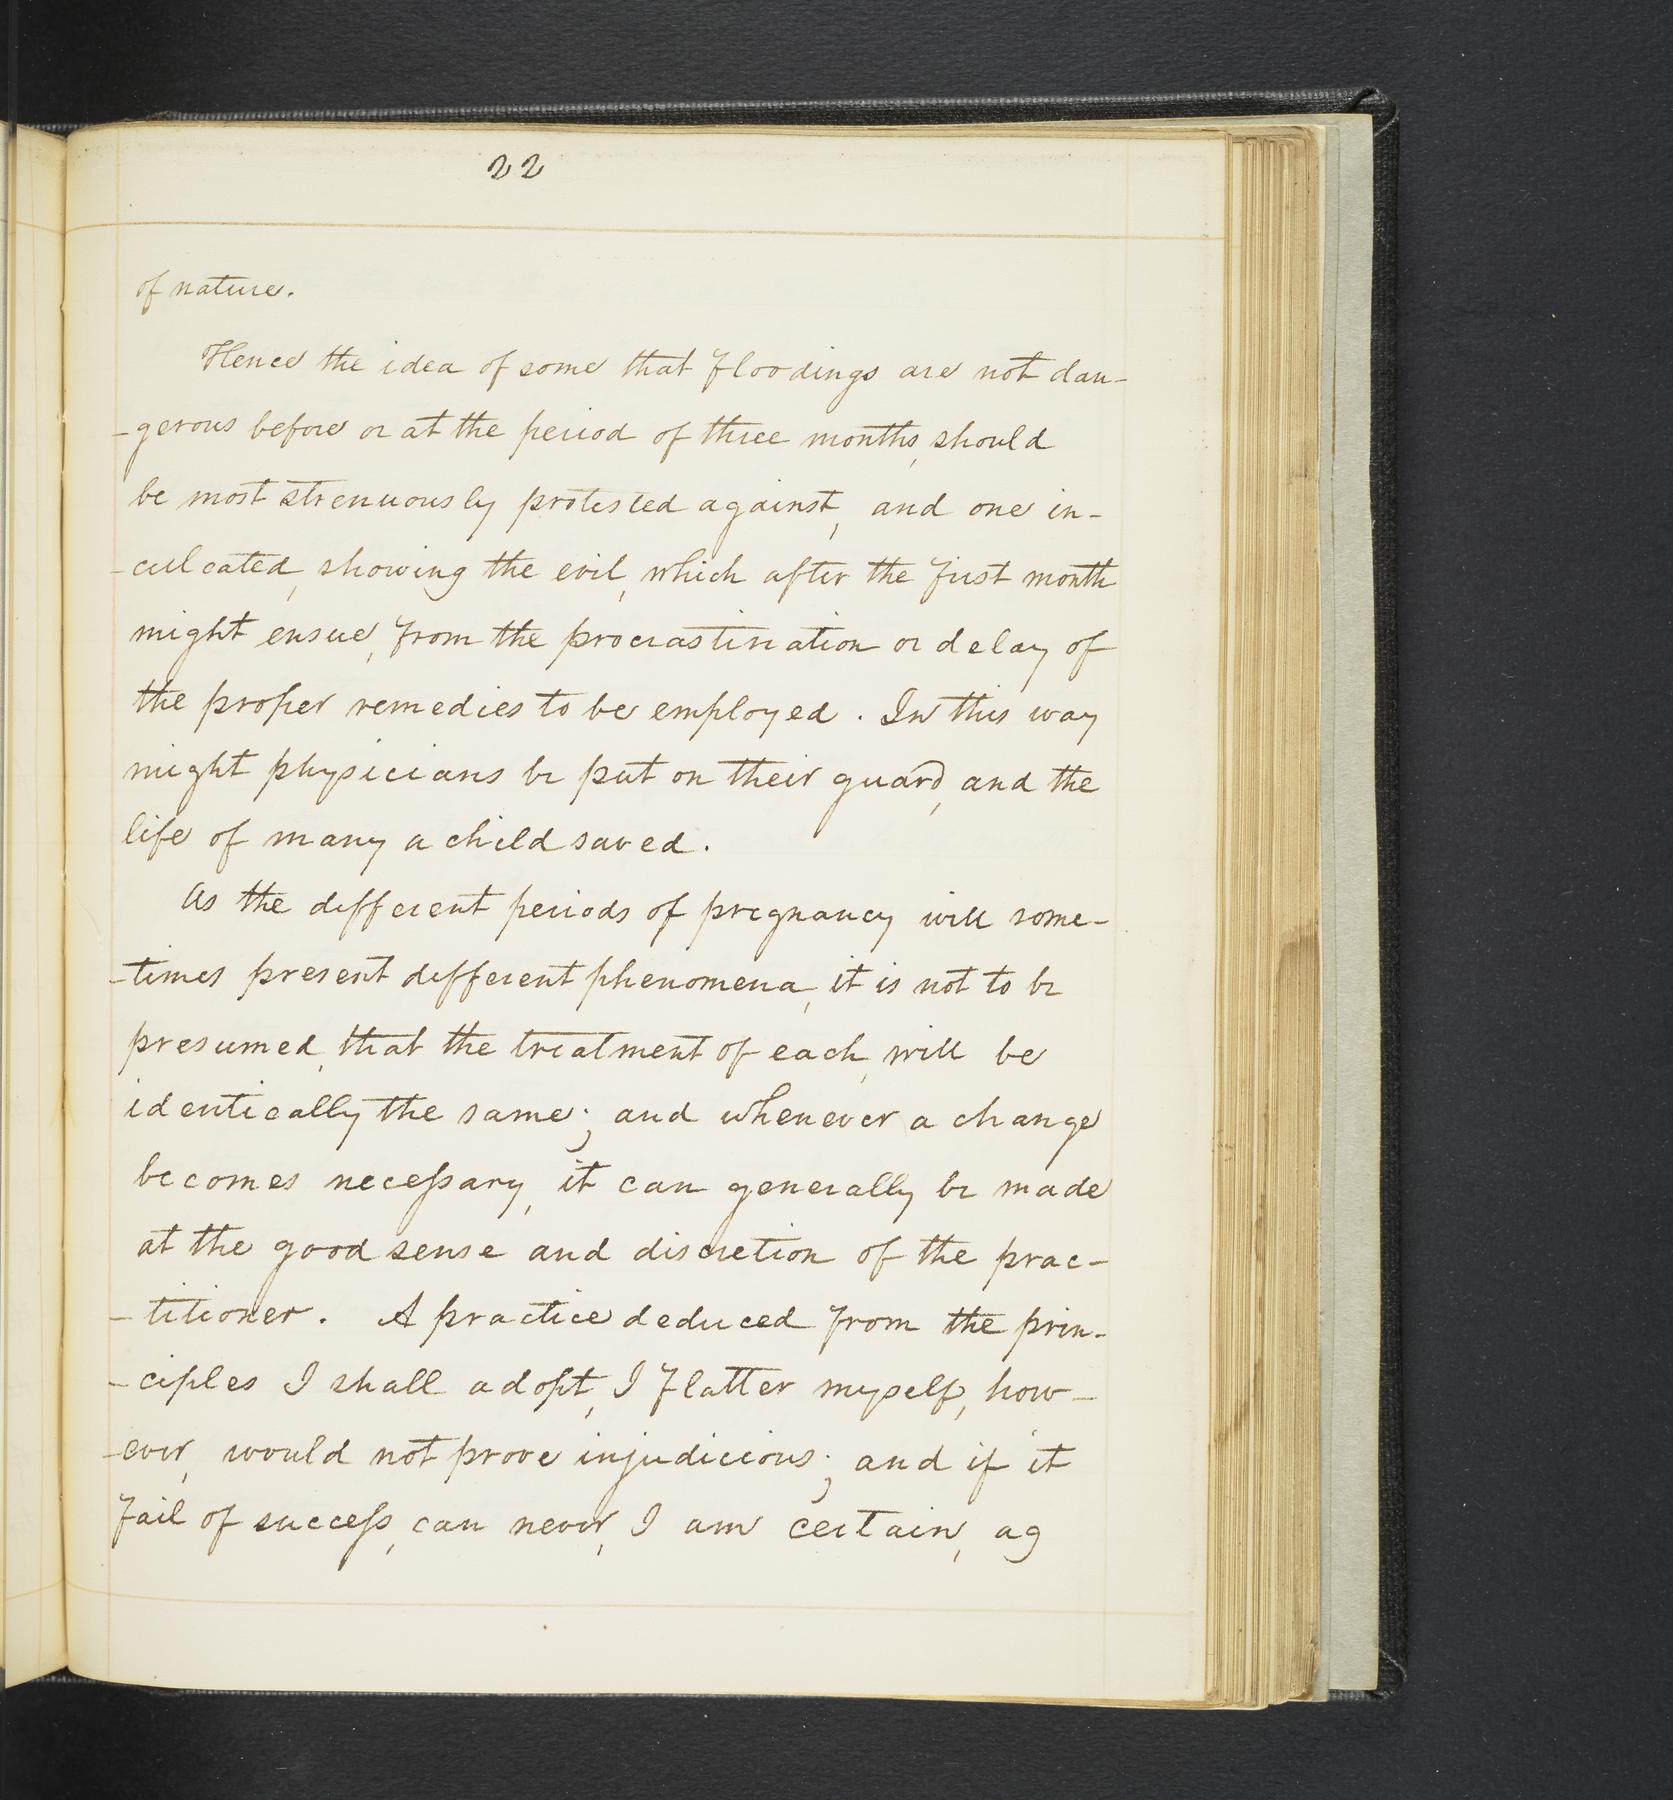 22
of nature.
Hence the idea of some that floodings are not dan-
-gerous before or at the period of three months, should
be most strenuously protested against, and one in-
-culcated, showing the evil, which after the first month
might ensue, from the procrastination or delay of
the proper remedies to be employed. In this way
might physicians be put on their guard, and the
life of many a child saved.
As the different periods of pregnancy will some-
-times present different phenomena, it is not to be
presumed, that the treatment of each, will be
identically the same; and whenever a change
becomes necessary, it can generally be made
at the good sense and discretion of the prac-
-titioner. A practice deduced from the prin-
-ciples I shall adopt, I flatter myself, how-
-ever, would not prove injudicious; and if it
fail of success, can never, I am certain, ag